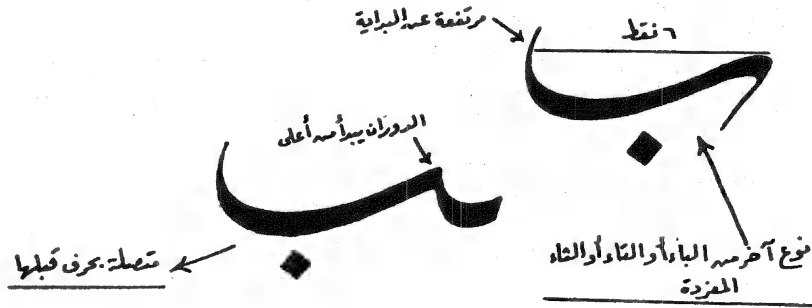 مرتفعة عن البداية
٦ نقط
ب
الدوران يبدأ من أعلى
ب
متصلة بحرف قبلها
نوع آخر من الباء أو التاء أو الثاء
المفردة